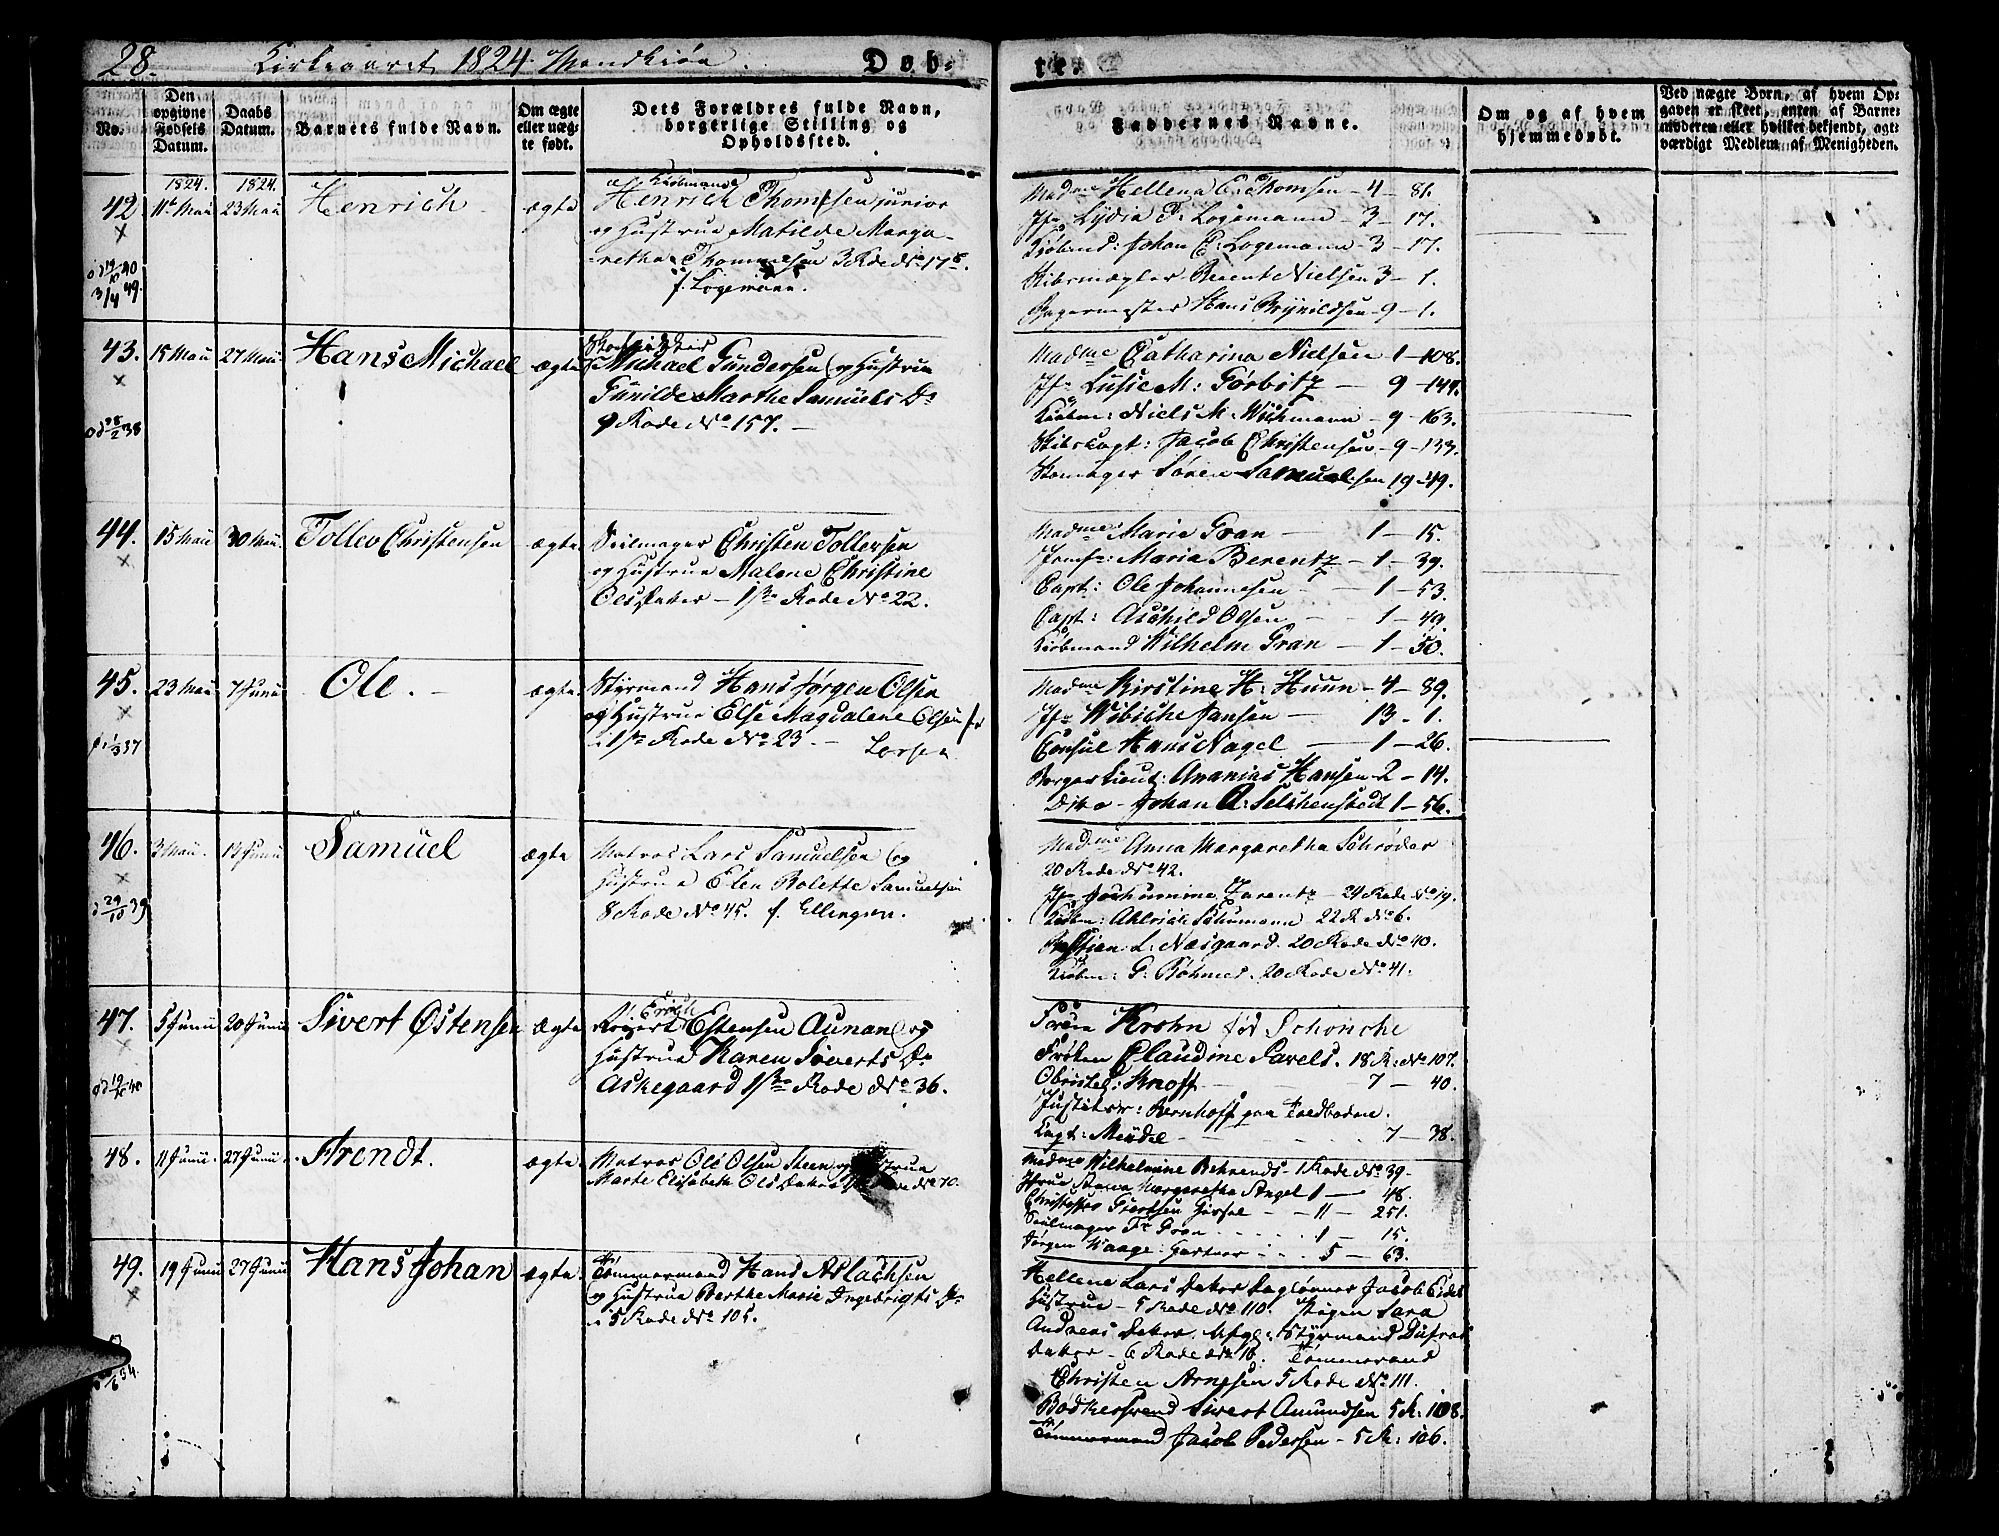 28. Kirkeaaret 1824 Mandkiøn. Døb-
te.
No.
Den
opgivne
Fødsels
Datum.
Daabs
Datum.
Barnets fulde Navn.
Om ægte
eller uæg-
te født.
Dets Forældres fulde Navn,
borgerlige Stilling og
Opholdssted.
Faddernes Navne.
Om og af hvem
hjemmedøbt.
Ved uægte Børn, af hvem Op-
gaven er skeet, enten af Barne-
moderen eller hvilket bekjendt, agt-
værdigt Medlem af Menigheden.
1824. 1824.
42 11te Maii 23 Maii Henrich ægte
Kiøbmand
Henrich Thomesen junior
og Hustrue Matilde Marga-
retha Thommesen 3 Rode No 17
f. Logemann.
Madme Hellena C. Thomsen - 4 - 86.
Jfr Lydia F: Logemann - 3 - 17.
Kiøbmd: Johan C: Logemann - 3 - 17.
Skibsmægler Berent Nielsen 3 - 1.
Bagermester Hans Brynildsen - 9 - 1.
43. 15 Maii 27 Maii Hans Michael ægte
Michael Gundersen og Hustrue
Gunilde Marthe Samuels Dr
9 Rode No 157. -
Madme Catharina Nielsen 1 - 108.
Jfr Lusie M: Görbitz - 9 - 149.
Kiøbm: Niels M: Wichmann - 9 - 163.
Skibscapt: Jacob Christensen - 9 - 133.
Skomager Søren Samuelsen 19 - 49.
44. 15 Maii 30 Maii. Tollev Christensen ægte
Seilmager Christen Tollersen
og Hustrue Malene Christine
Olsdatter - 1ste Rode No 22.
Madme Marie Gran - 1 - 15.
Jomfr: Maria Berentz - 1 - 39.
Capt: Ole Johannesen - 1 - 53.
Capt: Aschild Olsen - 1 - 49.
Kiøbmand Wilhelm Gran - 1 - 50.
45. 23 Maii 7 Junii Ole. - ægte
Styrmand Hans Jørgen Olsen
og Hustrue Else Magdalene Olsen f
i 1ste Rode No 23. - Larsen
Madme Kirstine H: Huun - 4 - 89.
Jfr Wibiche Jansen - 13 - 1.
Consul Hans Nagel - 1 - 26.
Borger Lieut: Ananias Hansen - 2 - 14.
Dito - Johan A: Selchenstedt 1 - 56.
46. 3 Maii. 13 Junii Samüel ægte
Matros Lars Samuelsen og
Hustrue Elen Bolette Samuelsen
8 Rode No 45. f. Ellingsen.
Madme Anna Margaretha Schrøder
20 Rode No 42.
Jfr Jochumine Zarentz - 24 Rode No 19.
Kiøbm: Ahlrich Schumann 22 R No 6.
L: Næsgaard. 20 Rode No 40.
Kiøbm: G: Bøhmer. 20 Rode No 41.
47. 5 Junii 20 Junii Sivert Østensen ægte
Erich
Estensen Aunan og
Hustrue Karen Siverts Dr
Askegaard 1ste Rode No 36.
Frue Krohn fød Schönche
Frøken Claudine Savels. 18 R: No 107.
Obristel: Knoff - 7 - 40.
Justitsr: Bernhoft paa Toldboden.
Capt: Meydel - 7 - 38.
48. 11 Junii 27 Junii Arendt. ægte
Matros Ole Olsen Steen og Hustrue
Marte Elisabeth Olsdatter Rode No 10.
Madme Wilhelmine Behrends - 1 Rode No 39 -
Margaretha Angel 1 - 48.
Giertsen - 11 - 251.
Seilmager Fr Gran - 1 - 15.
Jørgen Waage: Gartner - 5 - 63.
49. 19 Junii 27 Junii Hans Johan ægte
Tømmermand Hans Aslachsen
og Hustrue Berthe Marie Ingebrigts Dr
i 5 Rode No 105.
Hellene Lars Datter Dagløner Jacob Eides
Hustrue - 5 Rode No 110. Pigen Sara
Andreas Datter. Styrmand
Datter - 6 Rode No 18. Tømmermand
Christen Arnesen 5 Rode No 111.
Bødkersvend Sivert Amundsen 5 R: 108.
Tømmermand Jacob Pedersen - 5 R: 106.